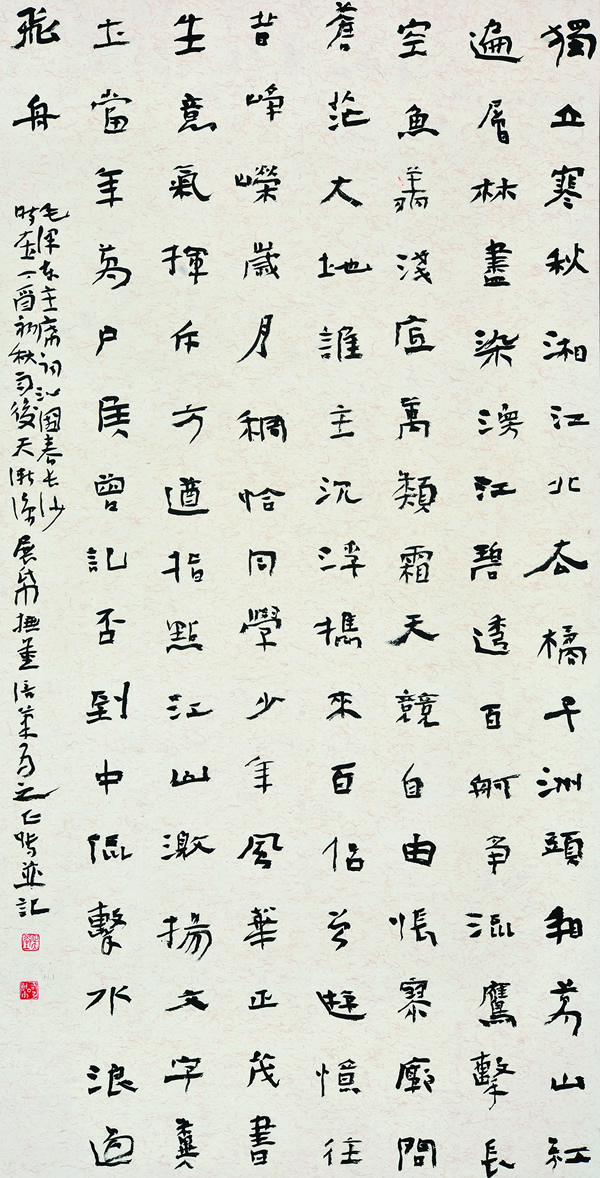 獨立寒秋湘江北去橘子洲頭看萬山紅
遍層林盡染漫江碧透百舸爭流鷹擊長
空魚翔淺底萬類霜天競自由悵寥廓問
蒼茫大地誰主沉浮攜來百侶曾遊憶往
昔崢嶸歲月稠恰同學少年風華正茂書
生意氣揮斥方遒指點江山激揚文字糞
土當年萬戶侯曾記否到中流擊水浪遏
飛舟
毛澤東主席詞沁園春長沙
時在丁酉初秋雨後天漸涼展帋撫墨信筆為之並記